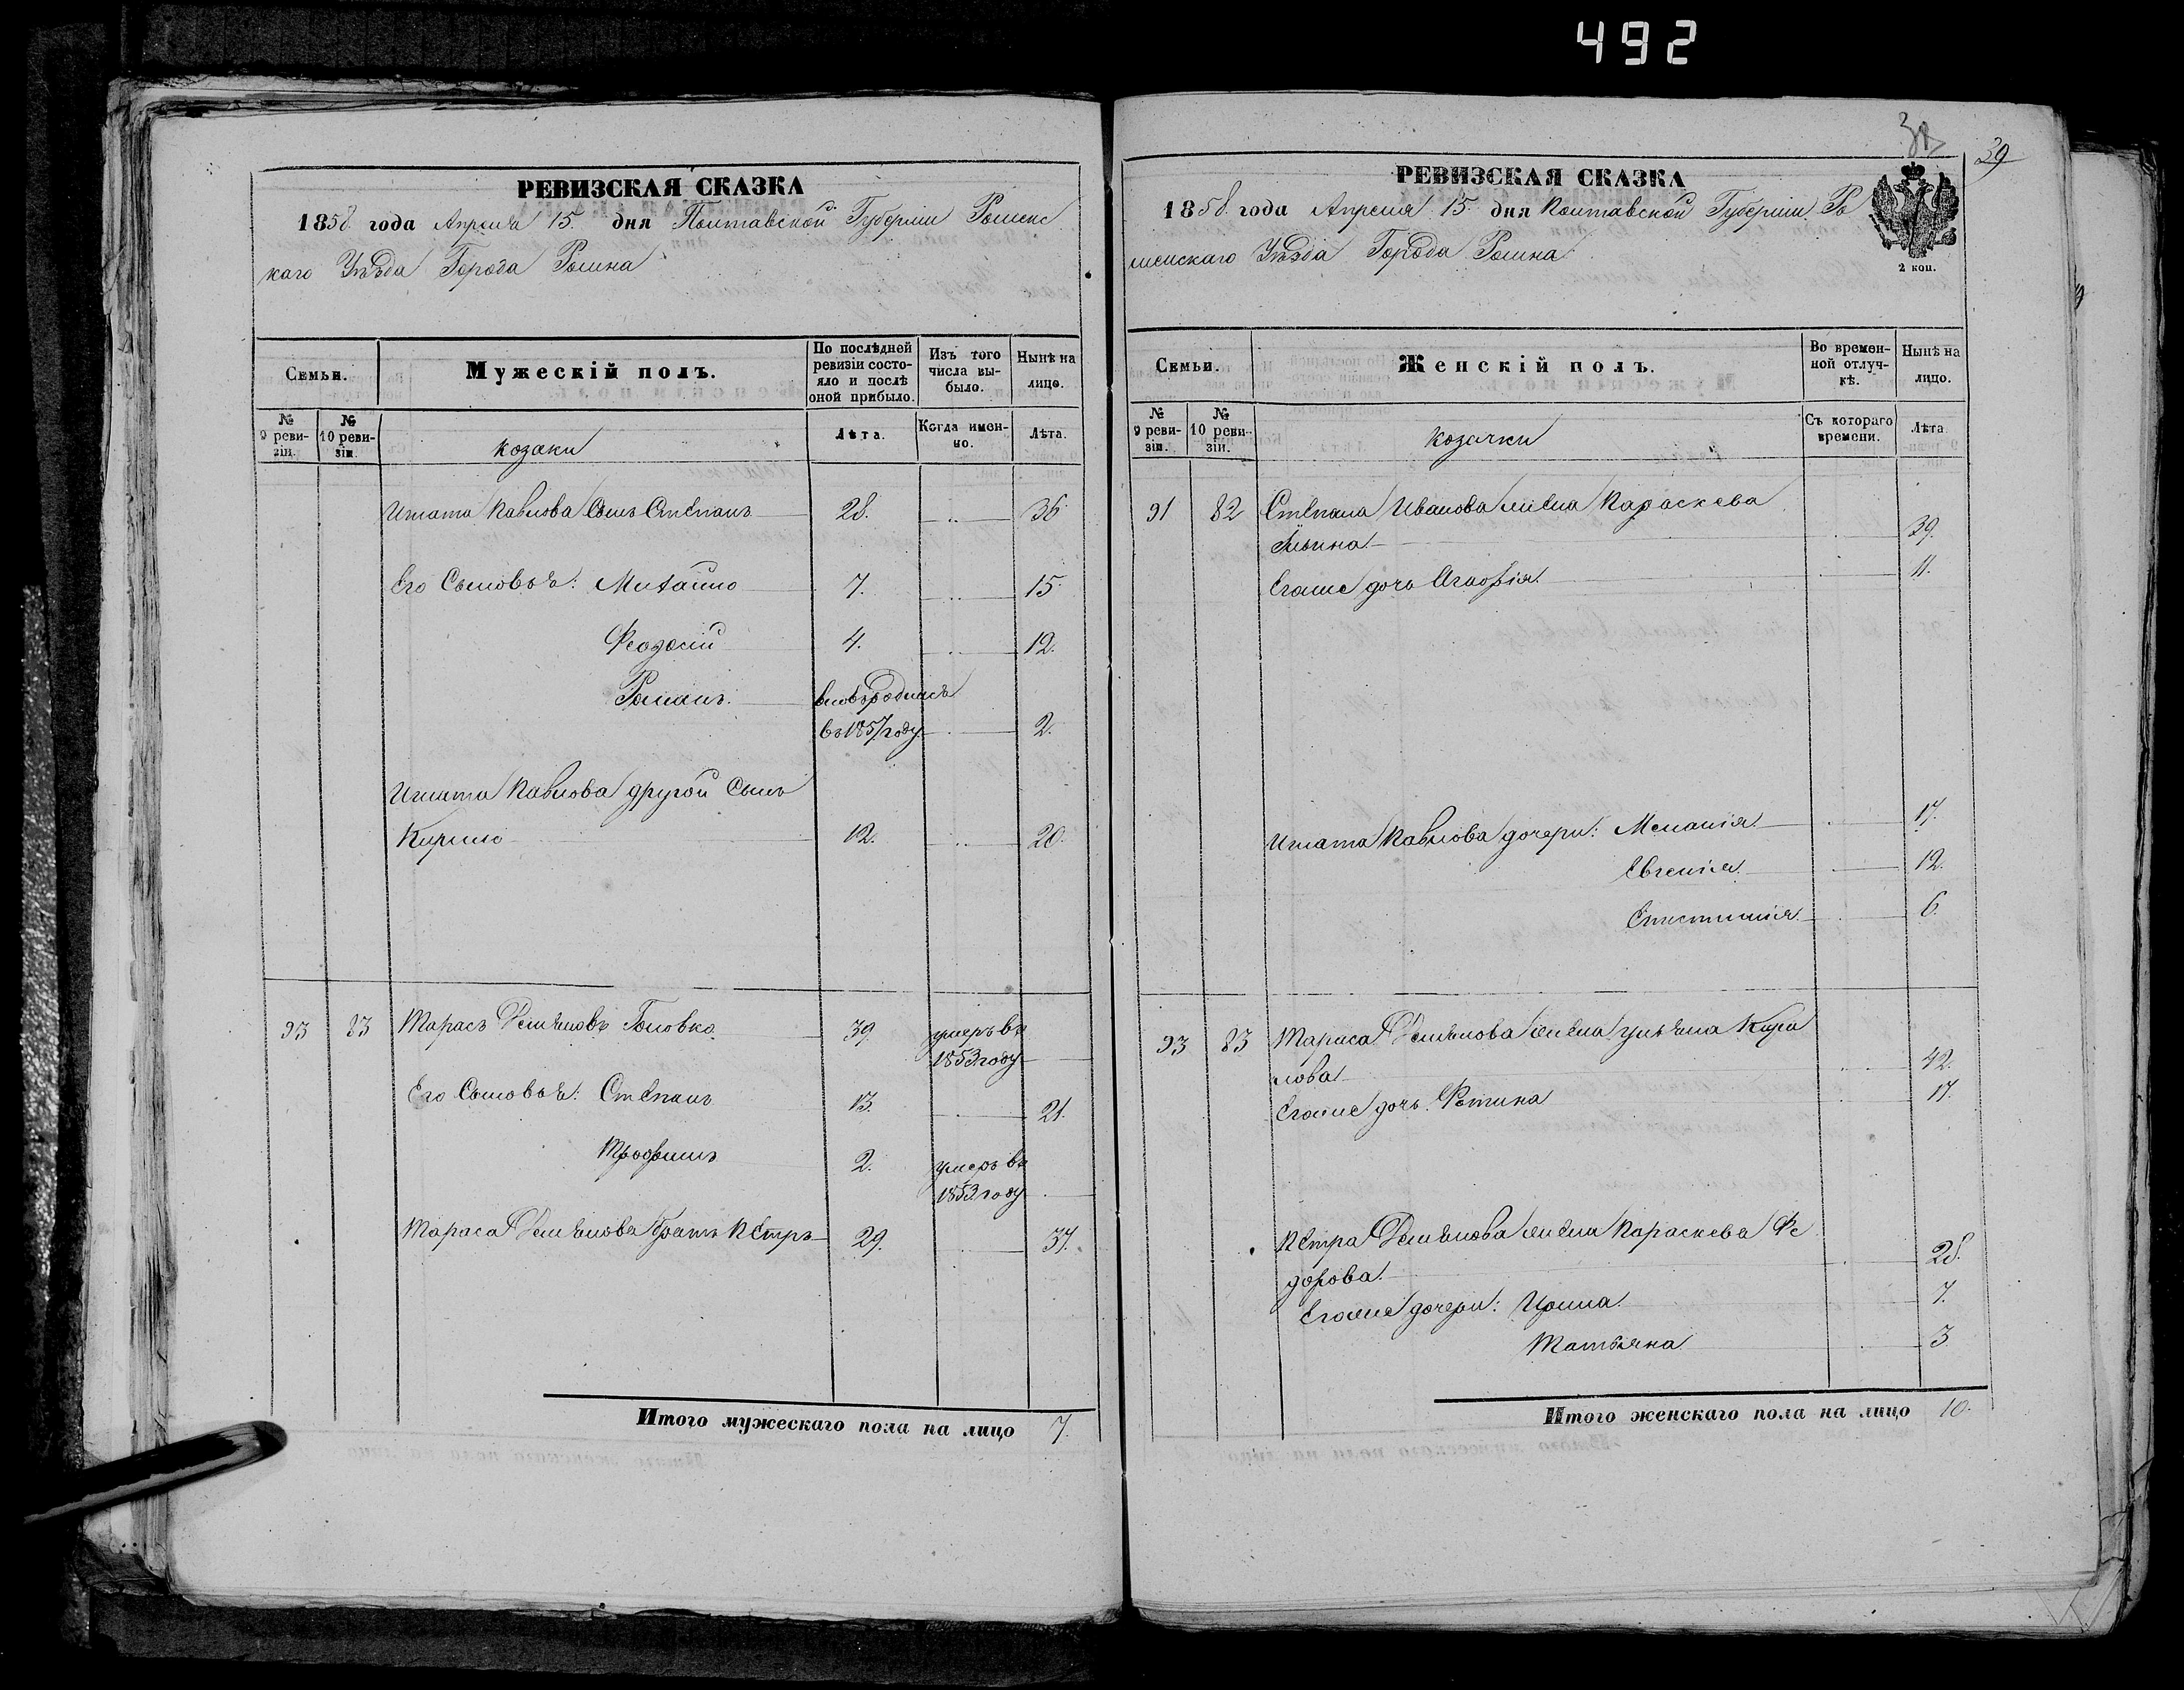 492
РЕВИЗСКАЯ СКАЗКА
1858 года Апреля 15 дня Полтавской Губерніи Роменс
каго Уѣзда Города Ромна
Семьи.
Мужескій полъ.
По послѣдней ревизіи состояло и послѣ оной прибыло.
Изъ того числа выбыло.
Нынѣ на лицо.
№ 9 ревизіи.
№ 10 ревизіи.
козаки
Лѣта.
Когда именно.
Лѣта.
Игната Павлова Сынъ Степанъ 28. 36
Его Сыновья: Михайло 7. 15
Феодосій 4. 12.
Романъ. вновь родился
въ 1857 году 2.
Игната Павлова другой Сынъ
Кирило 12. 20.
93 83 Тарасъ Демьяновъ Головко 39. умеръ въ
1853 году
Его Сыновья: Степанъ 13. 21.
Трофимъ 2. умеръ въ
1853 году
Тараса Демьянова братъ Петръ 29. 37.
Итого мужескаго пола на лицо 7.
39
РЕВИЗСКАЯ СКАЗКА
1858 года Апреля 15 дня Полтавской Губерніи Ро
менскаго Уѣзда Города Ромна
2 коп.
Семьи.
Женскій полъ.
Во временной отлучкѣ.
Нынѣ на лицо.
№ 9 ревизіи.
№ 10 ревизіи.
козачки
Съ котораго времени.
Лѣта
91 82 Степана Иванова жена Параскева
Ильина 39.
Егоже дочь Агафія 11.
Игната Павлова дочери: Меланія 17.
Евгенія 12.
6.
93 83 Тараса Демьянова жена Ульяна Кири
лова 42.
Егоже дочь Фотина 17.
Петра Демьянова жена Параскева Фе
дорова 28.
Егоже дочери: Ирина 7.
Татьяна 3
Итого женскаго пола на лицо 10.